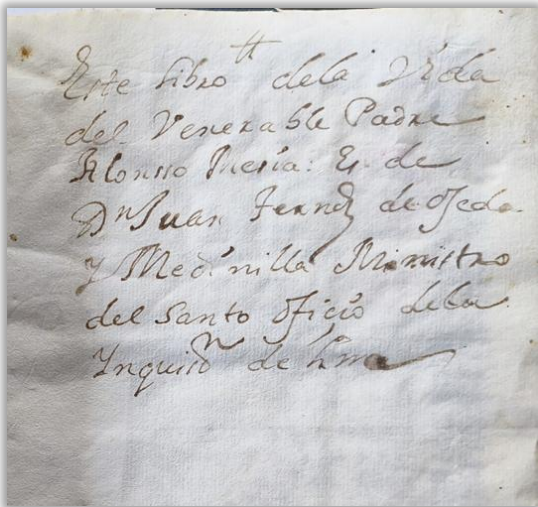 Este libro dela Vida
del Venerable Padre
Alonso Mesia: Es de
Dn Juan Fernz de ojeda
y Medinilla Ministro
del Santo oficio dela
Ynquisn de Lima